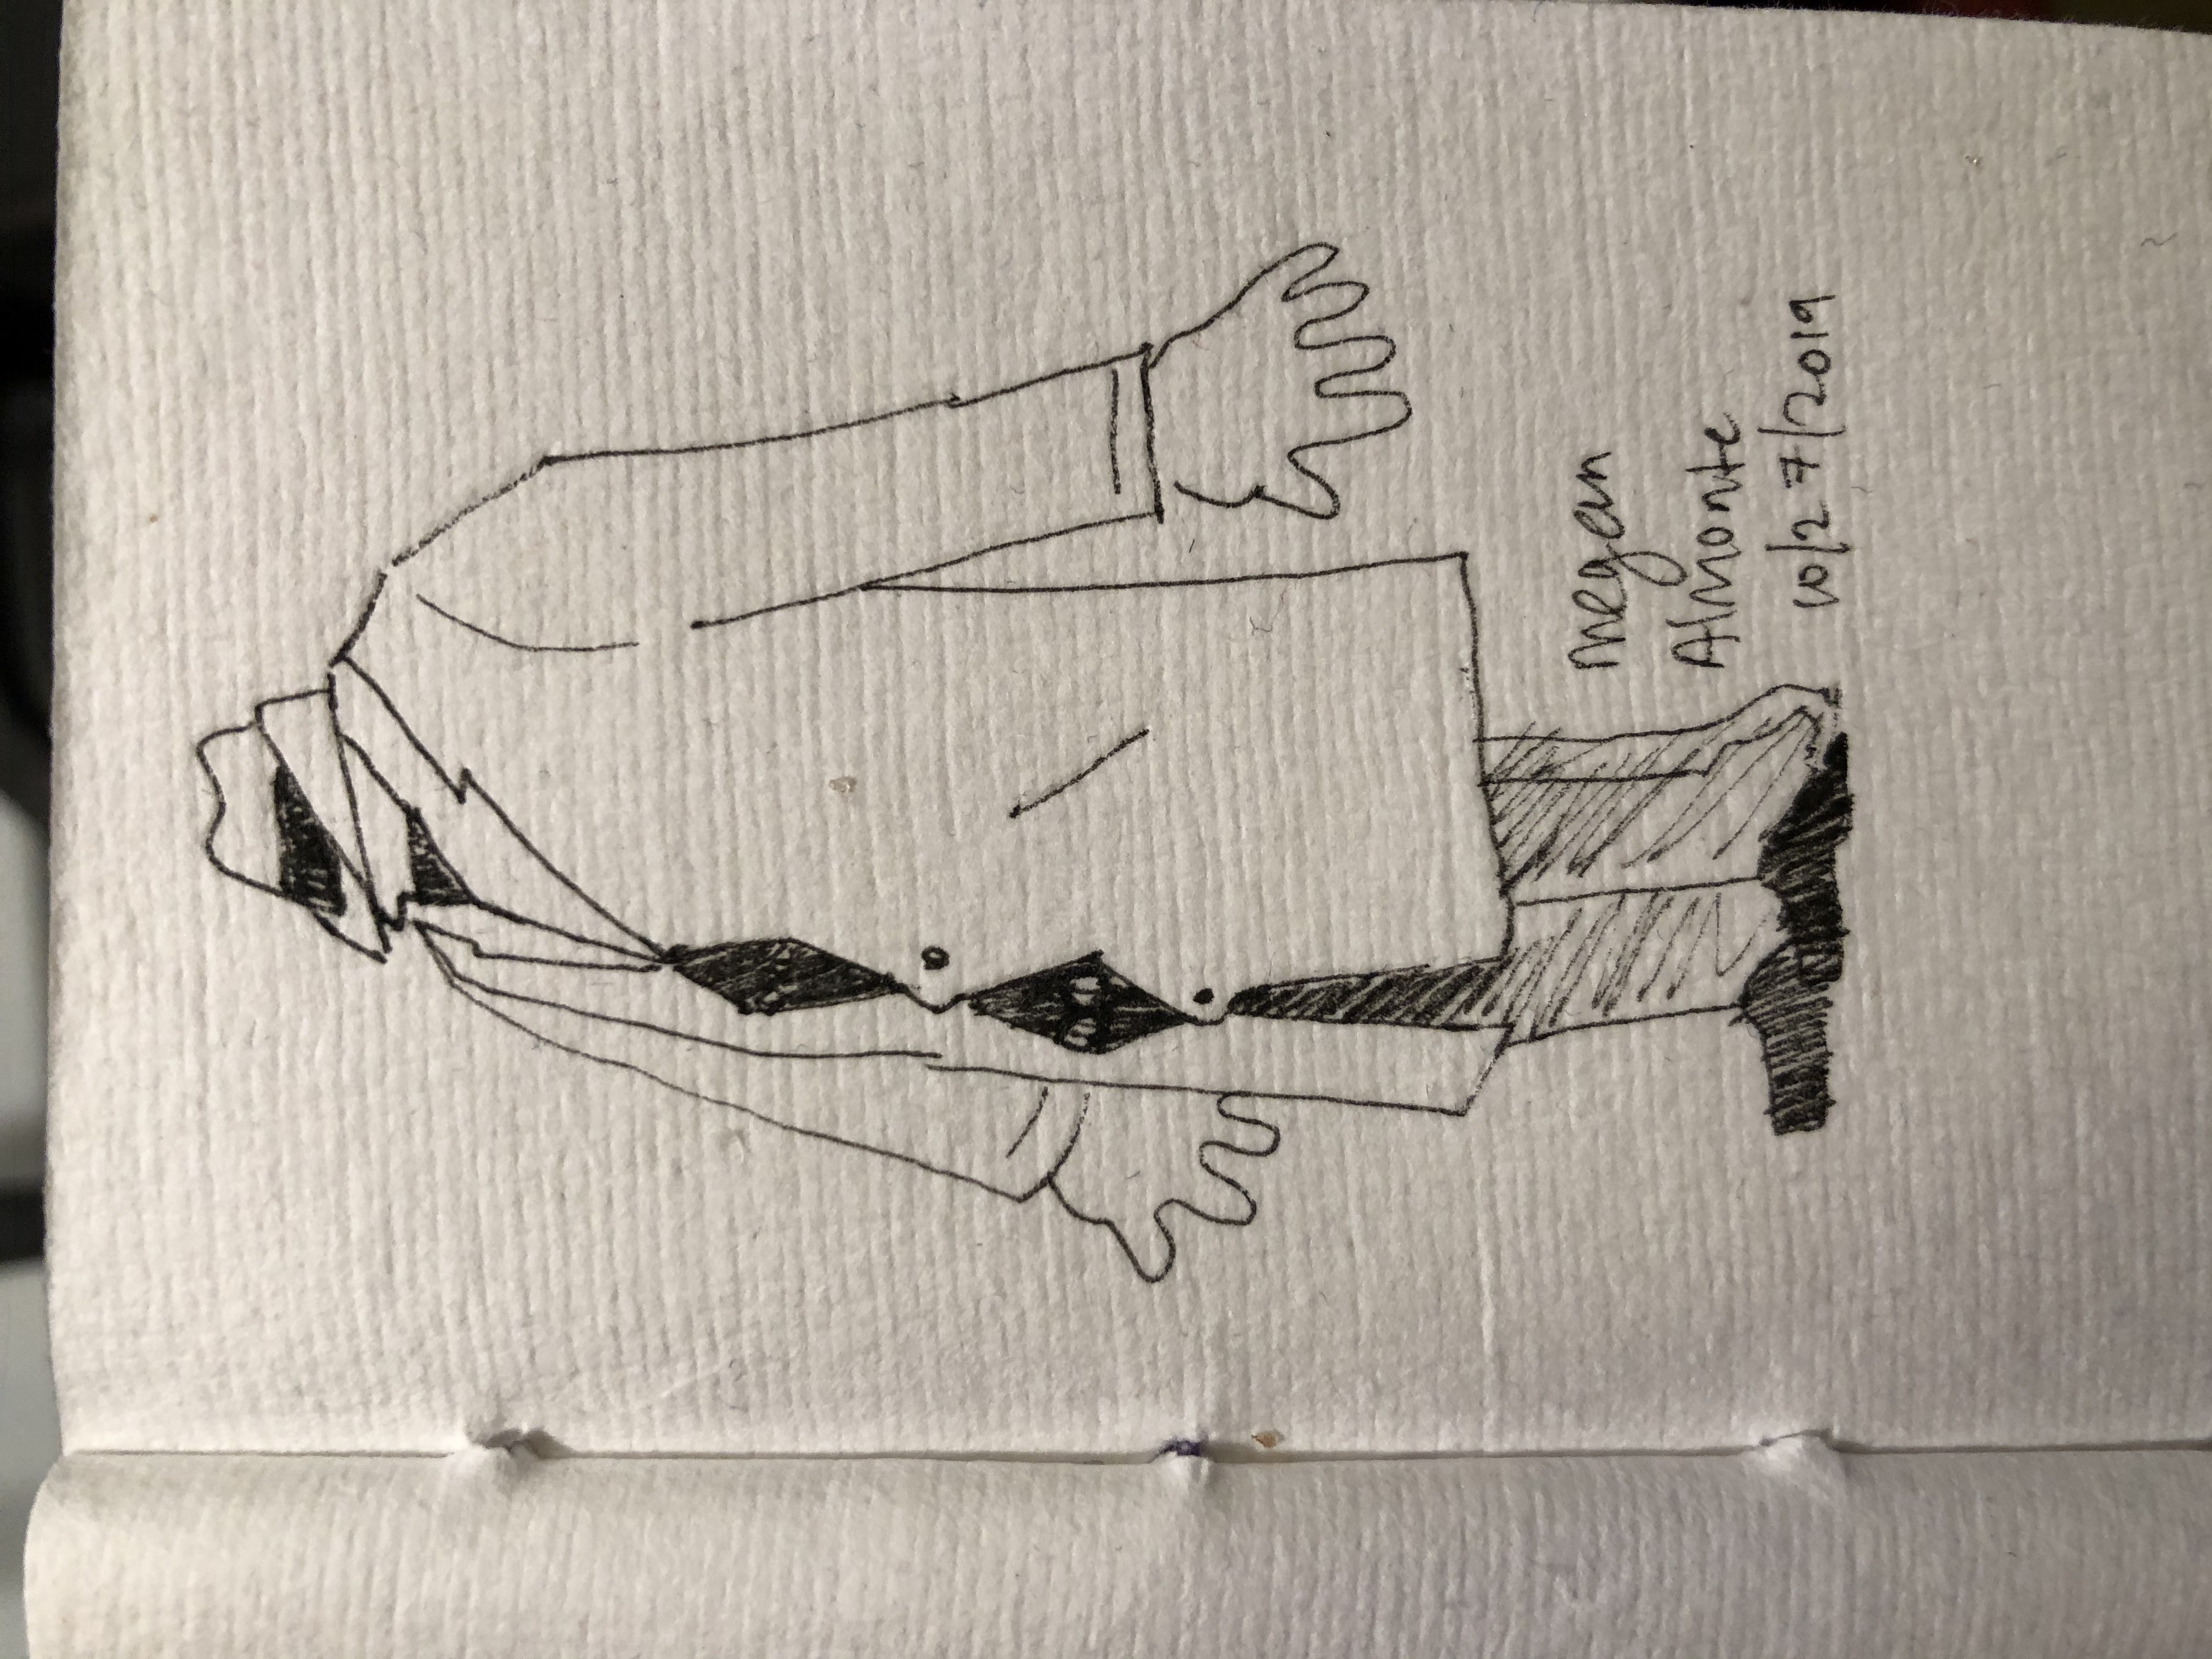 megan
Almonte
10/27/2019